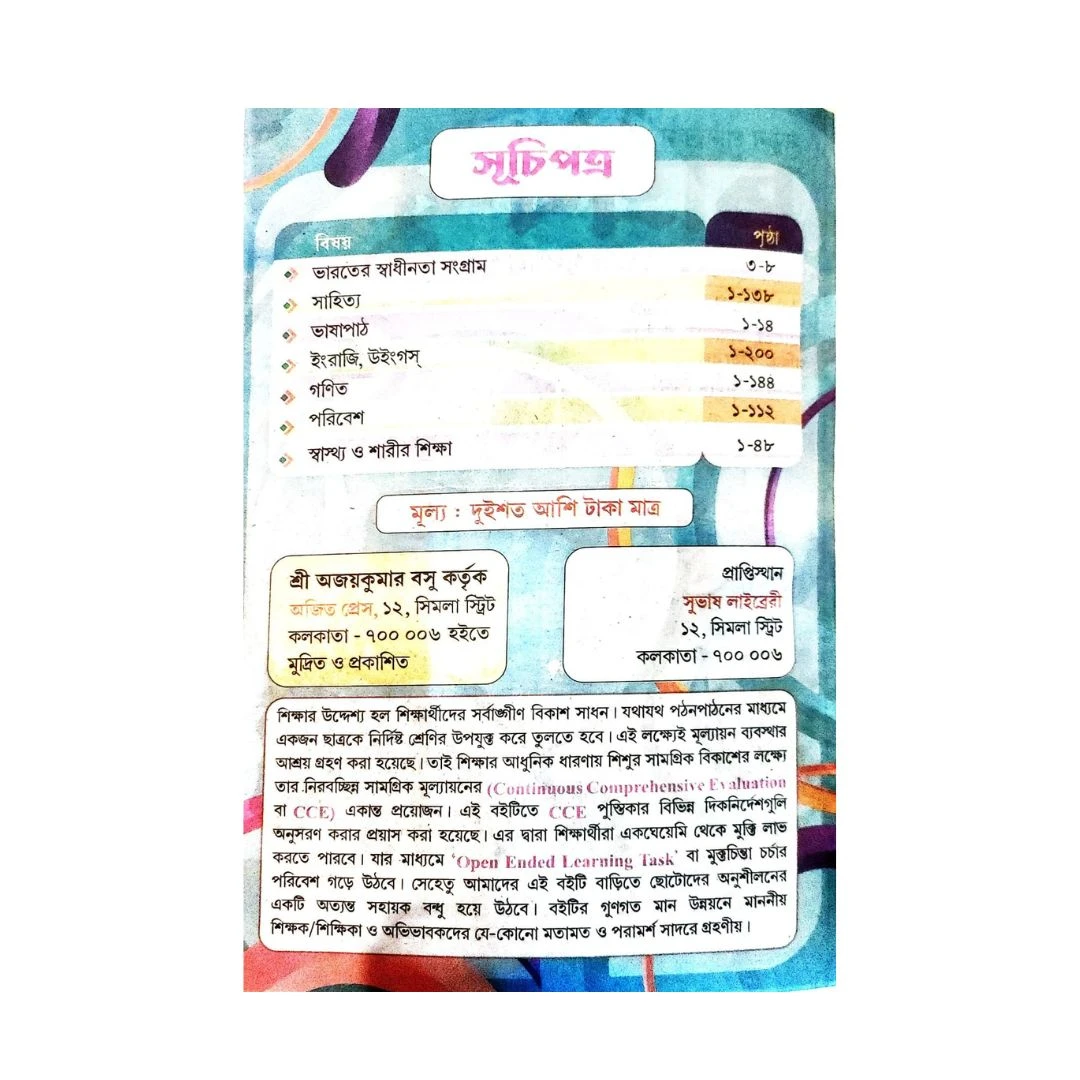 সূচিপত্র
বিষয় পৃষ্ঠা
ভারতের স্বাধীনতা সংগ্রাম ৩-৮
সাহিত্য ১-১৩৮
ভাষাপাঠ ১-১৪
ইংরাজি, উইংগস্ ১-২০০
গণিত ১-১৪৪
পরিবেশ ১-১১২
স্বাস্থ্য ও শারীর শিক্ষা ১-৪৮
মূল্য : দুইশত আশি টাকা মাত্র
শ্রী অজয়কুমার বসু কর্তৃক
অজিত প্রেস, ১২, সিমলা স্ট্রিট
কলকাতা - ৭০০ ০০৬ হইতে
মুদ্রিত ও প্রকাশিত
প্রাপ্তিস্থান
সুভাষ লাইব্রেরী
১২, সিমলা স্ট্রিট
কলকাতা - ৭০০ ০০৬
শিক্ষার উদ্দেশ্য হল শিক্ষার্থীদের সর্বাঙ্গীণ বিকাশ সাধন। যথাযথ পঠনপাঠনের মাধ্যমে
একজন ছাত্রকে নির্দিষ্ট শ্রেণির উপযুক্ত করে তুলতে হবে। এই লক্ষ্যেই মূল্যায়ন ব্যবস্থার
আশ্রয় গ্রহণ করা হয়েছে। তাই শিক্ষার আধুনিক ধারণায় শিশুর সামগ্রিক বিকাশের লক্ষ্যে
তার নিরবচ্ছিন্ন সামগ্রিক মূল্যায়নের (Continuous Comprehensive Evaluation
বা CCE) একান্ত প্রয়োজন। এই বইটিতে CCE পুস্তিকার বিভিন্ন দিকনির্দেশগুলি
অনুসরণ করার প্রয়াস করা হয়েছে। এর দ্বারা শিক্ষার্থীরা একঘেয়েমি থেকে মুক্তি লাভ
করতে পারবে। যার মাধ্যমে ‘Open Ended Learning Task’ বা মুক্তচিন্তা চর্চার
পরিবেশ গড়ে উঠবে। সেহেতু আমাদের এই বইটি বাড়িতে ছোটোদের অনুশীলনের
একটি অত্যন্ত সহায়ক বন্ধু হয়ে উঠবে। বইটির গুণগত মান উন্নয়নে মাননীয়
শিক্ষক/শিক্ষিকা ও অভিভাবকদের যে-কোনো মতামত ও পরামর্শ সাদরে গ্রহণীয়।